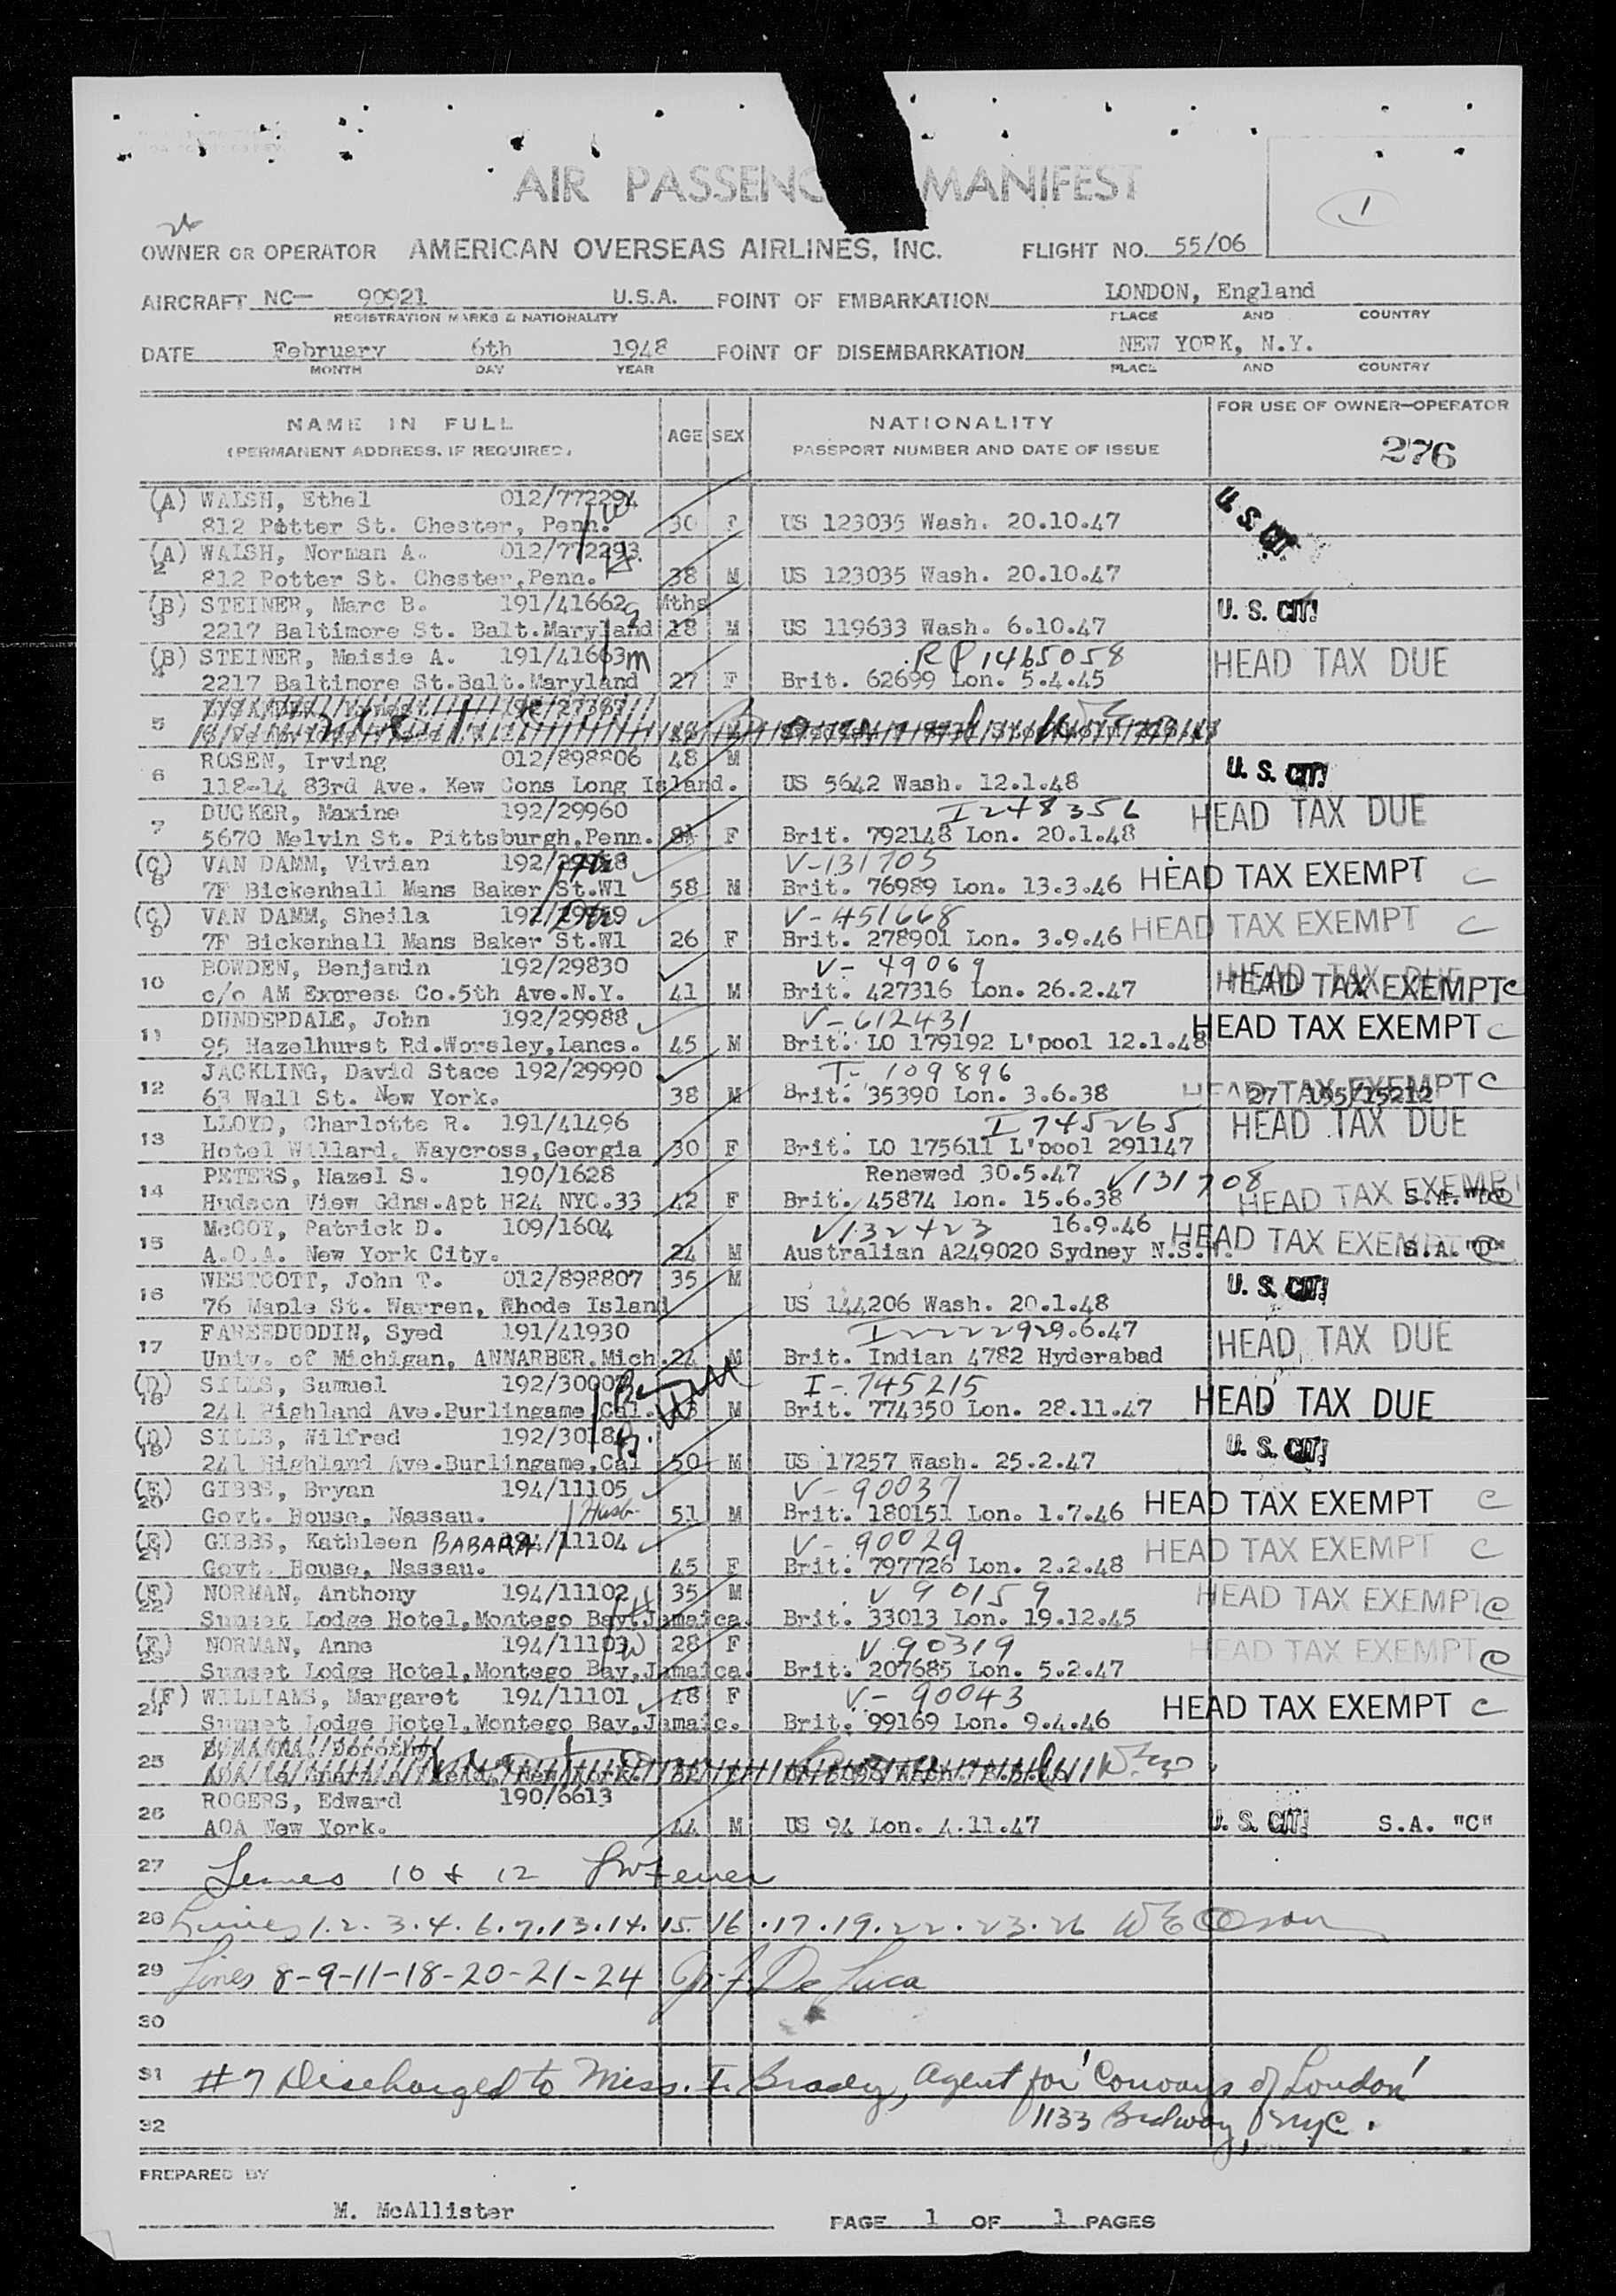 AIR PASSENG MANIFEST
1
OWNER OR OPERATOR AMERICAN OVERSEAS AIRLINES, INC. FLIGHT NO. 55/06
AIRCRAFT NC— 90921 U.S.A. POINT OF EMBARKATION LONDON, England
REGISTRATION MARKS & NATIONALITY PLACE AND COUNTRY
DATE February 6th 1948 POINT OF DISEMBARKATION NEW YORK, N.Y.
MONTH DAY YEAR PLACE AND COUNTRY
NAME IN FULL AGE SEX NATIONALITY FOR USE OF OWNER—OPERATOR
(PERMANENT ADDRESS, IF REQUIRED) PASSPORT NUMBER AND DATE OF ISSUE 276
(A) WALSH, Ethel 012/772294 U. S. CIT.
1 812 Potter St. Chester, Penn. W 30 F US 123035 Wash. 20.10.47
(A) WALSH, Norman A. 012/772293
2 812 Potter St. Chester, Penn. 38 M US 123035 Wash. 20.10.47
(B) STEINER, Marc B. 191/41662 Mths U. S. CIT!
3 2217 Baltimore St. Balt.Maryland 18 M US 119633 Wash. 6.10.47
(B) STEINER, Maisie A. 191/41663 m RP 1465058 HEAD TAX DUE
4 2217 Baltimore St.Balt.Maryland 27 F Brit. 62699 Lon. 5.4.45
5
ROSEN, Irving 012/898806 48 M U. S. CIT!
6 118-14 83rd Ave. Kew Gons Long Island. US 5642 Wash. 12.1.48
DUCKER, Maxine 192/29960 I248356 HEAD TAX DUE
7 5670 Melvin St. Pittsburgh,Penn. F Brit. 792148 Lon. 20.1.48
(C) VAN DAMM, Vivian 192/ V-131705 HEAD TAX EXEMPT C
8 7F Bickenhall Mans Baker St.W1 58 M Brit. 76989 Lon. 13.3.46
(C) VAN DAMM, Sheila 192/ V-451668 HEAD TAX EXEMPT C
9 7F Bickenhall Mans Baker St.W1 26 F Brit. 278901 Lon. 3.9.46
BOWDEN, Benjamin 192/29830 V- 49069 HEAD TAX EXEMPT C
10 c/o AM Express Co.5th Ave.N.Y. 41 M Brit. 427316 Lon. 26.2.47
DUNDERDALE, John 192/29988 V-612431 HEAD TAX EXEMPT C
11 95 Hazelhurst Rd.Worsley,Lancs. 45 M Brit. LO 179192 L'pool 12.1.48
JACKLING, David Stace 192/29990 T- 109896 HEAD TAX EXEMPT C
12 63 Wall St. New York. 38 M Brit. 35390 Lon. 3.6.38 27 195/15212
LLOYD, Charlotte R. 191/41496 I 745265 HEAD TAX DUE
13 Hotel Willard, Waycross,Georgia 30 F Brit. LO 175611 L'pool 291147
PETERS, Hazel S. 190/1628 Renewed 30.5.47 V131708 HEAD TAX EXEMPT
14 Hudson View Gdns.Apt H24 NYC.33 42 F Brit. 45874 Lon. 15.6.38 S.A.
McCOY, Patrick D. 109/1604 V132423 16.9.46 HEAD TAX EXEMPT
15 A.O.A. New York City. 24 M Australian A249020 Sydney N.S. S.A.
WESTCOTT, John T. 012/898807 35 M U. S. CIT!
16 76 Maple St. Warren, Rhode Island US 144206 Wash. 20.1.48
FAREEDUDDIN, Syed 191/41930 9.6.47 HEAD TAX DUE
17 Univ. of Michigan, ANNARBER.Mich. 24 M Brit. Indian 4782 Hyderabad
(D) SILLS, Samuel 192/30007 I-745215 HEAD TAX DUE
18 241 Highland Ave.Burlingame,Cal. M Brit. 774350 Lon. 28.11.47
(D) SILLS, Wilfred 192/3018 U. S. CIT!
19 241 Highland Ave.Burlingame,Cal 50 M US 17257 Wash. 25.2.47
(E) GIBBS, Bryan 194/11105 V-90037 HEAD TAX EXEMPT C
20 Govt. House, Nassau. Husb 51 M Brit. 180151 Lon. 1.7.46
(E) GIBBS, Kathleen BABARA 194/11104 V-90029 HEAD TAX EXEMPT C
21 Govt. House, Nassau. 45 F Brit. 797726 Lon. 2.2.48
(F) NORMAN, Anthony 194/11102 35 M V 90159 HEAD TAX EXEMPT C
22 Sunset Lodge Hotel,Montego Bay,Jamaica. Brit. 33013 Lon. 19.12.45
(F) NORMAN, Anne 194/11103 W 28 F V 90319 HEAD TAX EXEMPT C
23 Sunset Lodge Hotel,Montego Bay,Jamaica. Brit. 207685 Lon. 5.2.47
(F) WILLIAMS, Margaret 194/11101 48 F V- 90043 HEAD TAX EXEMPT C
24 Sunset Lodge Hotel,Montego Bay,Jamaic. Brit. 99169 Lon. 9.4.46
25
ROGERS, Edward 190/6613
26 AOA New York. 44 M US 94 Lon. 4.11.47 U. S. CIT! S.A. "C"
27 10 & 12
28 Lines 1.2.3.4.6.7.13.14.15.16.17.19.22.23.26
29 Lines 8-9-11-18-20-21-24 De Luca
30
31 #7 Discharged to Miss. I. Brady, Agent for 'Conways of London'
32 1133 Brdway, NYC.
PREPARED BY
M. McAllister PAGE 1 OF 1 PAGES